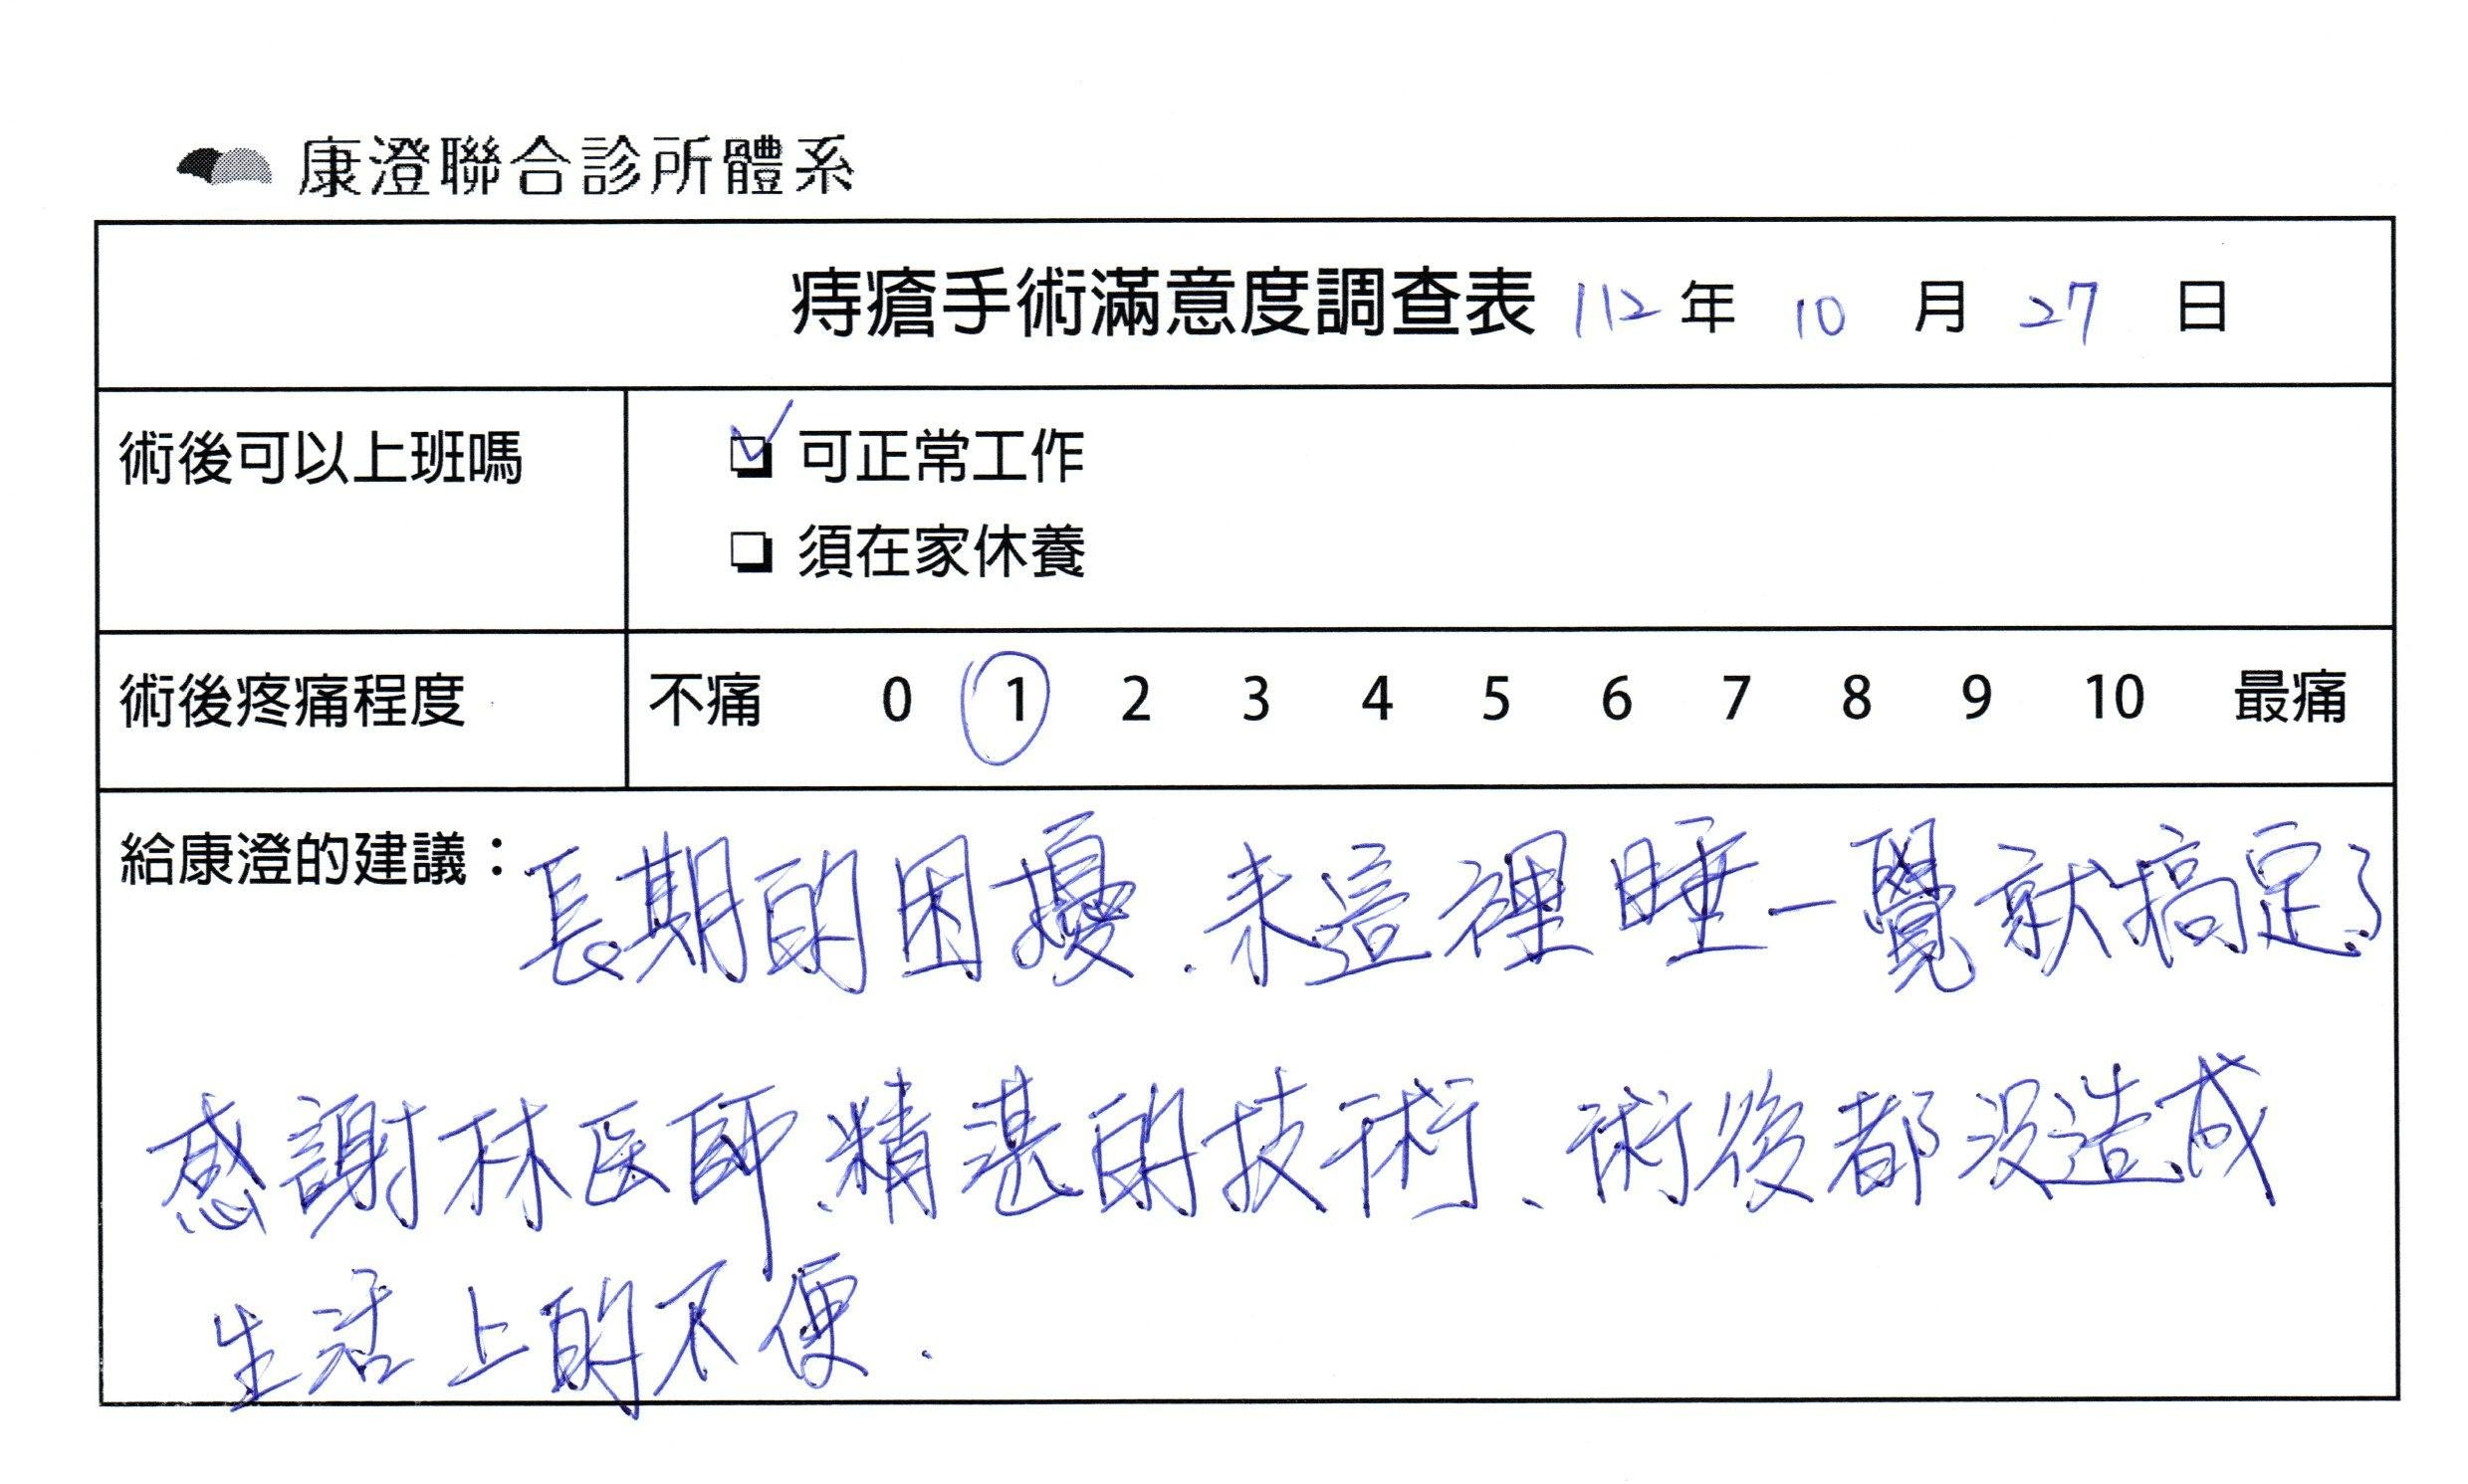 康澄聯合診所體系
痔瘡手術滿意度調查表 112 年 10 月 27 日
術後可以上班嗎
可正常工作
須在家休養
術後疼痛程度 不痛 0 1 2 3 4 5 6 7 8 9 10 最痛
給康澄的建議：長期的困擾.來這裡睡一覺就搞定了
感謝林医師.精湛的技術、術後都没造成
生活上的不便.